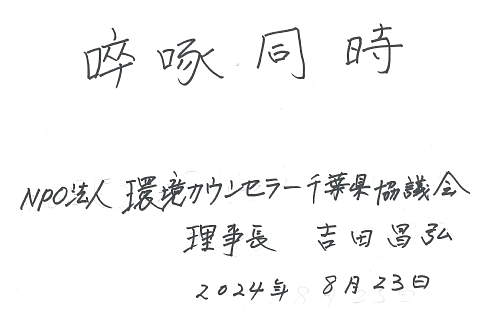 啐啄同時
NPO法人 環境カウンセラー千葉県協議会
理事長 吉田昌弘
2024年 8月23日